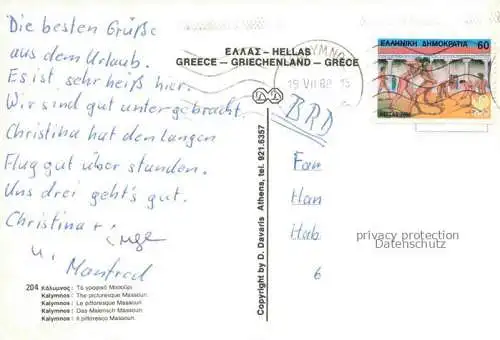 Die besten Grüße
aus dem Urlaub.
Es ist sehr heiß hier.
Wir sind gut untergebracht.
Christina hat den langen
Flug gut über standen.
Uns drei geht's gut.
Christina +
u. Manfred
204 Κάλυμνος: Τό γραφικό Μασούρι
Kalymnos: The picturesque Massouri.
Kalymnos: Le pittoresque Massouri.
Kalymnos: Das Malerisch Massouri.
Kalymnos: Il pittoresco Massouri.
ΕΛΛΑΣ - HELLAS
GREECE - GRIECHENLAND - GRÈCE
Copyright by D. Davaris Athens, tel. 921.6357
19 VII 88 15
ΕΛΛΗΝΙΚΗ ΔΗΜΟΚΡΑΤΙΑ 60
BRD
Fam
Han
Hab
6
privacy protection
Datenschutz